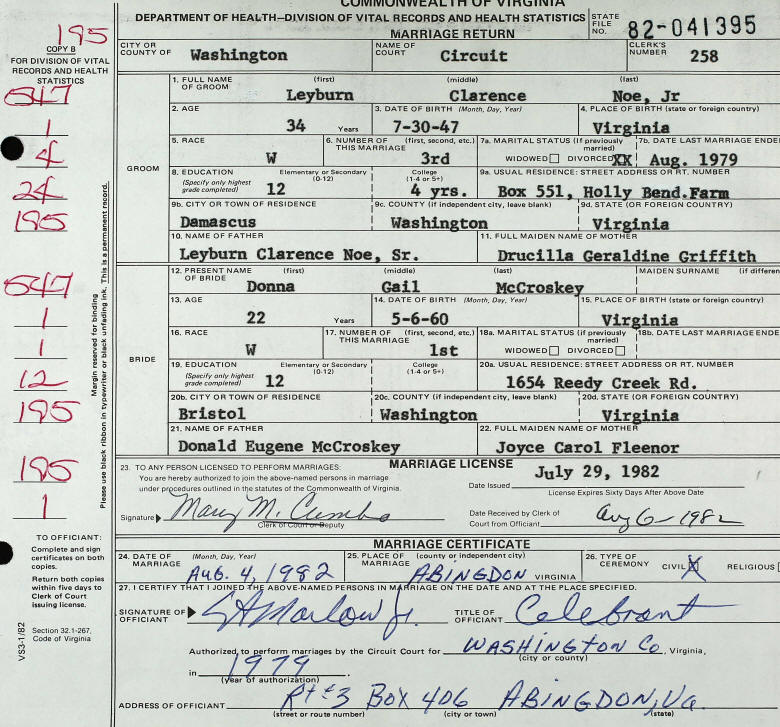 COMMONWEALTH OF VIRGINIA
DEPARTMENT OF HEALTH—DIVISION OF VITAL RECORDS AND HEALTH STATISTICS
MARRIAGE RETURN
STATE FILE NO. 82-041395
195
COPY B
FOR DIVISION OF VITAL RECORDS AND HEALTH STATISTICS
CITY OR COUNTY OF Washington NAME OF COURT Circuit CLERK'S NUMBER 258
547
1
4
24
195
547
1
1
12
195
195
1
Margin reserved for binding
Please use black ribbon in typewriter or black unfading ink. This is a permanent record.
GROOM
1. FULL NAME OF GROOM (first) (middle) (last)
Leyburn Clarence Noe, Jr
2. AGE 3. DATE OF BIRTH (Month, Day, Year) 4. PLACE OF BIRTH (state or foreign country)
34 Years 7-30-47 Virginia
5. RACE 6. NUMBER OF THIS MARRIAGE (first, second, etc.) 7a. MARITAL STATUS (if previously married) 7b. DATE LAST MARRIAGE ENDE
W 3rd WIDOWED DIVORCED XX Aug. 1979
8. EDUCATION (Specify only highest grade completed) Elementary or Secondary (0-12) College (1-4 or 5+) 9a. USUAL RESIDENCE: STREET ADDRESS OR RT. NUMBER
12 4 yrs. Box 551, Holly Bend.Farm
9b. CITY OR TOWN OF RESIDENCE 9c. COUNTY (if independent city, leave blank) 9d. STATE (OR FOREIGN COUNTRY)
Damascus Washington Virginia
10. NAME OF FATHER 11. FULL MAIDEN NAME OF MOTHER
Leyburn Clarence Noe, Sr. Drucilla Geraldine Griffith
BRIDE
12. PRESENT NAME OF BRIDE (first) (middle) (last) MAIDEN SURNAME (if differen
Donna Gail McCroskey
13. AGE 14. DATE OF BIRTH (Month, Day, Year) 15. PLACE OF BIRTH (state or foreign country)
22 Years 5-6-60 Virginia
16. RACE 17. NUMBER OF THIS MARRIAGE (first, second, etc.) 18a. MARITAL STATUS (if previously married) 18b. DATE LAST MARRIAGE ENDE
W 1st WIDOWED DIVORCED
19. EDUCATION (Specify only highest grade completed) Elementary or Secondary (0-12) College (1-4 or 5+) 20a. USUAL RESIDENCE: STREET ADDRESS OR RT. NUMBER
12 1654 Reedy Creek Rd.
20b. CITY OR TOWN OF RESIDENCE 20c. COUNTY (if independent city, leave blank) 20d. STATE (OR FOREIGN COUNTRY)
Bristol Washington Virginia
21. NAME OF FATHER 22. FULL MAIDEN NAME OF MOTHER
Donald Eugene McCroskey Joyce Carol Fleenor
MARRIAGE LICENSE
23. TO ANY PERSON LICENSED TO PERFORM MARRIAGES:
You are hereby authorized to join the above-named persons in marriage under procedures outlined in the statutes of the Commonwealth of Virginia.
Date Issued July 29, 1982
License Expires Sixty Days After Above Date
Signature Mary M. Cumbo
Clerk of Court or Deputy
Date Received by Clerk of Court from Officiant Aug 6-1982
TO OFFICIANT:
Complete and sign certificates on both copies.
Return both copies within five days to Clerk of Court issuing license.
Section 32.1-267, Code of Virginia
VS3-1/82
MARRIAGE CERTIFICATE
24. DATE OF MARRIAGE (Month, Day, Year) 25. PLACE OF MARRIAGE (county or independent city) 26. TYPE OF CEREMONY
Aug. 4, 1982 ABINGDON VIRGINIA CIVIL X RELIGIOUS
27. I CERTIFY THAT I JOINED THE ABOVE-NAMED PERSONS IN MARRIAGE ON THE DATE AND AT THE PLACE SPECIFIED.
SIGNATURE OF OFFICIANT Marlow Jr. TITLE OF OFFICIANT Celebrant
Authorized to perform marriages by the Circuit Court for WASHINGTON Co, Virginia,
(city or county)
in 1979
(year of authorization)
ADDRESS OF OFFICIANT Rt #3 Box 406 ABINGDON, Va.
(street or route number) (city or town) (state)